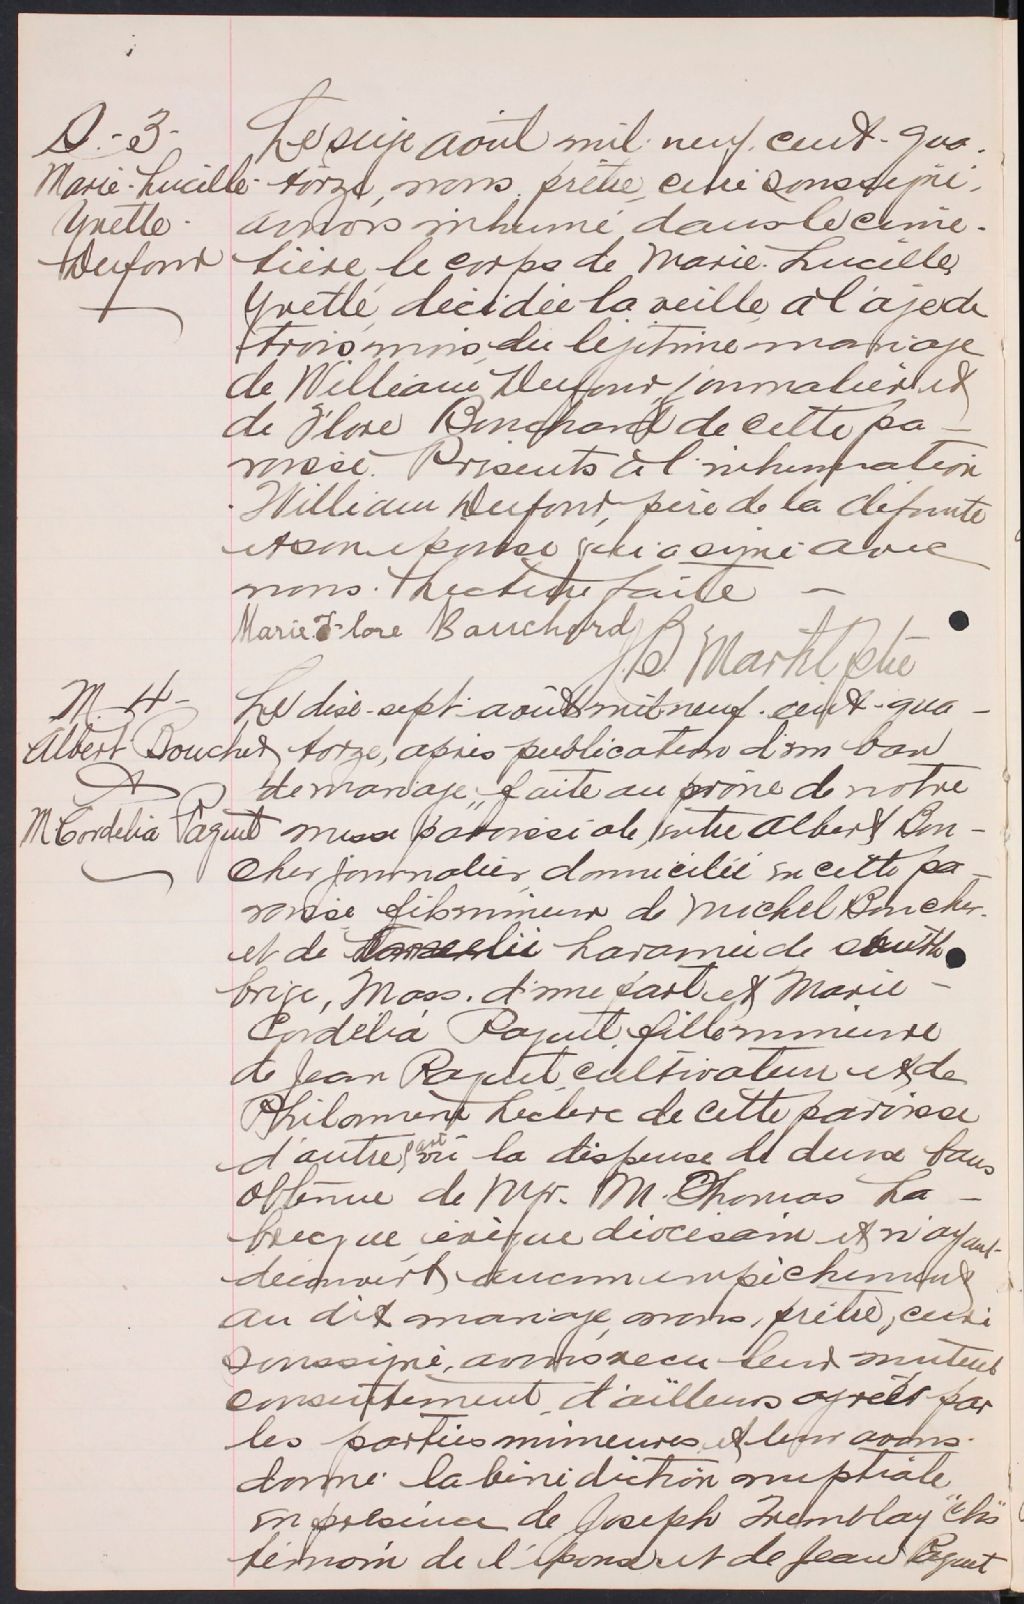 S.-3-
Marie-Lucille-
Yvette-
Dufour
Le seize août mil-neuf-cent-qua-
torze, nous, prêtre, curé soussigné,
avons inhumé dans le cime-
tière, le corps de Marie-Lucille,
Yvette, décédée la veille, à l'âge de
trois mois, du légitime mariage
de William Dufour, journalier et
de Flore Bouchard de cette pa-
roisse. Présents à l'inhumation
William Dufour, père de la défunte
et son épouse qui a signé avec
nous. Lecture faite —
Marie Flore Bouchard
J.B. Martel ptre
M. 4-
Albert Boucher
&
M Cordélia Paquet
Le dix-sept-août mil neuf-cent-qua-
torze, après publication d'un ban
de mariage, faite au prône de notre
messe paroissiale, entre Albert Bou-
cher, journalier, domicilié en cette pa-
roisse, fils mineur de Michel Boucher
et de Laramée de South
brige, Mass. d'une part et Marie-
Cordélia Paquet, fille mineure
de Jean Paquet, cultivateur et de
Philomène Leclerc de cette paroisse
d'autre part vu la dispense de deux bans
obtenue de Mgr. M. Thomas La-
brecque, évêque diocésain et n'ayant
découvert aucun empêchement
au dit mariage, nous, prêtre, curé
soussigné, avons reçu leur mutuel
consentement, d'ailleurs agréé par
les parties mineures, et leur avons
donné la bénédiction nuptiale
en présence de Joseph Tremblay
témoin de l'époux et de Jean Paquet